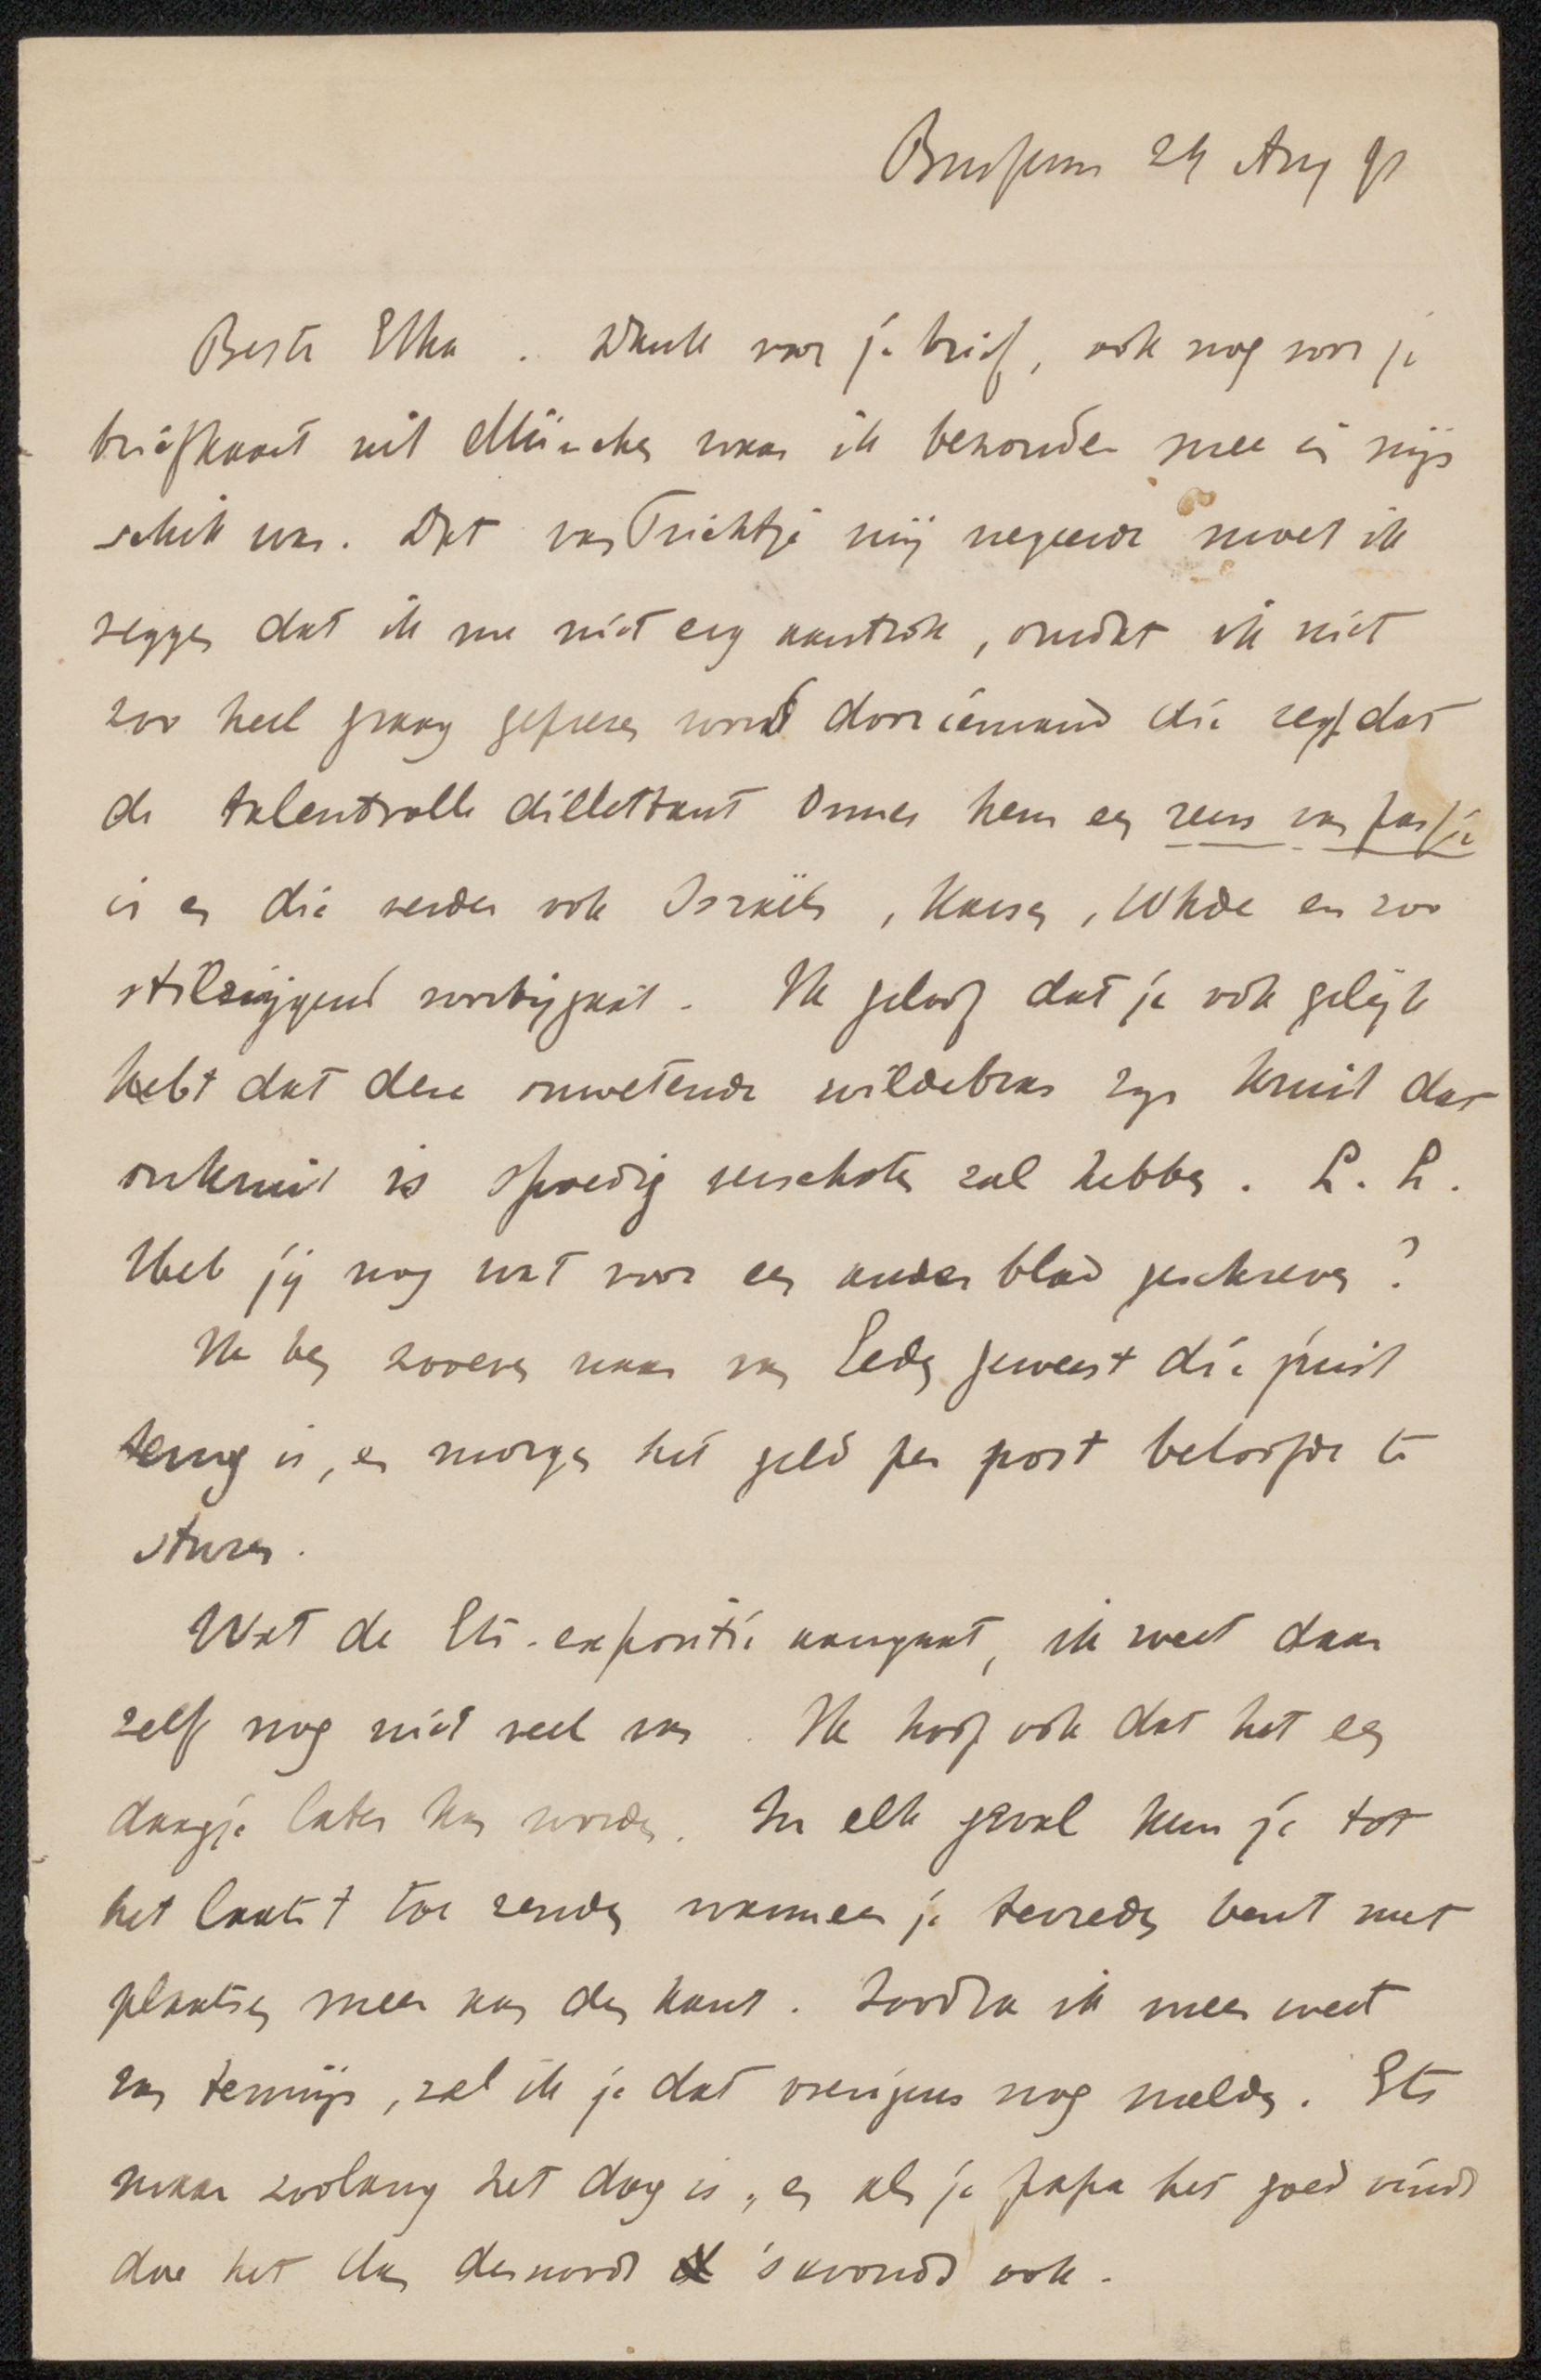 Bussum 24 Aug 91
Beste Etha. Dank voor je brief, ook nog voor je
briefkaart uit München waar ik bezonder mee in mijn
schik was. Dat van Trichtje mij negeerde moet ik
zeggen dat ik me niet erg aantrok, omdat ik niet
zoo heel graag geprezen word door iemand die zegt dat
de talentvolle dillettant Onnes hem een reus van passie
is en die verder ook Israëls, Kaiser, Uhde en zoo
stilzwijgend voorbijgaat. Ik geloof dat je ook gelijk
hebt dat deze onwetende wildebras zijn kruit dat
onkruid is spoedig verschoten zal hebben. L. L.
Heb jij nog wat voor een ander blad geschreven?
Ik ben zooeven naar van Eeden geweest die juist
terug is, en morgen het geld per post beloofde te
sturen.
Wat de Ets-expositie aangaat, ik weet daar
zelf nog niet veel van. Ik hoop ook dat het een
daagje later kan worden. In elk geval kun je tot
het laatst toe zenden wanneer je tevreden bent met
plaatsen meer aan den kant. Zoodra ik meer weet
van termijn, zal ik je dat overigens nog melden. Ets
maar zoolang het dag is, en als je papa het goed vindt
doe het dan desnoods 's avonds ook.